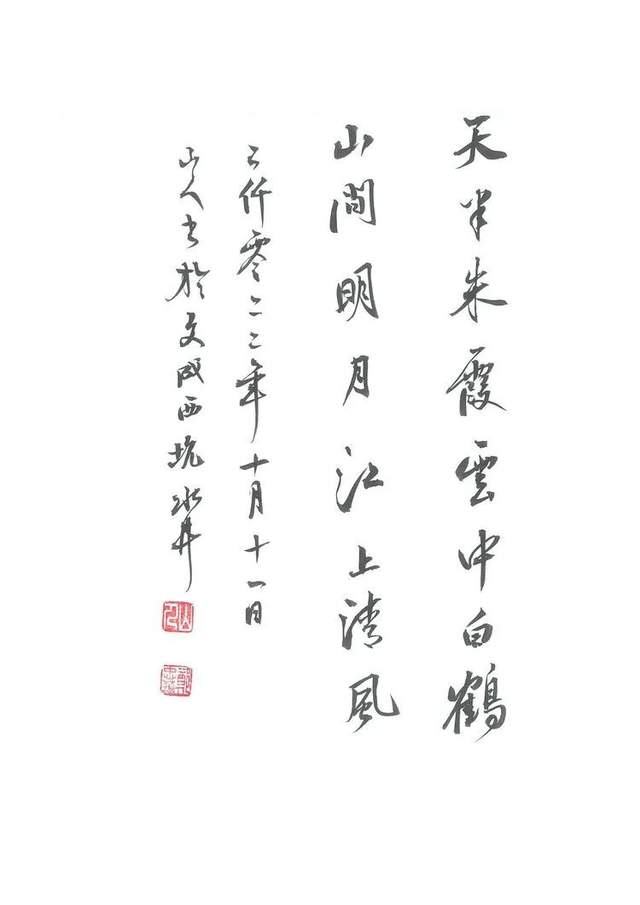 天半朱霞雲中白鶴
山間明月江上清風
二仟零二二年十月十一日
山人書於文成西坑水井
山人